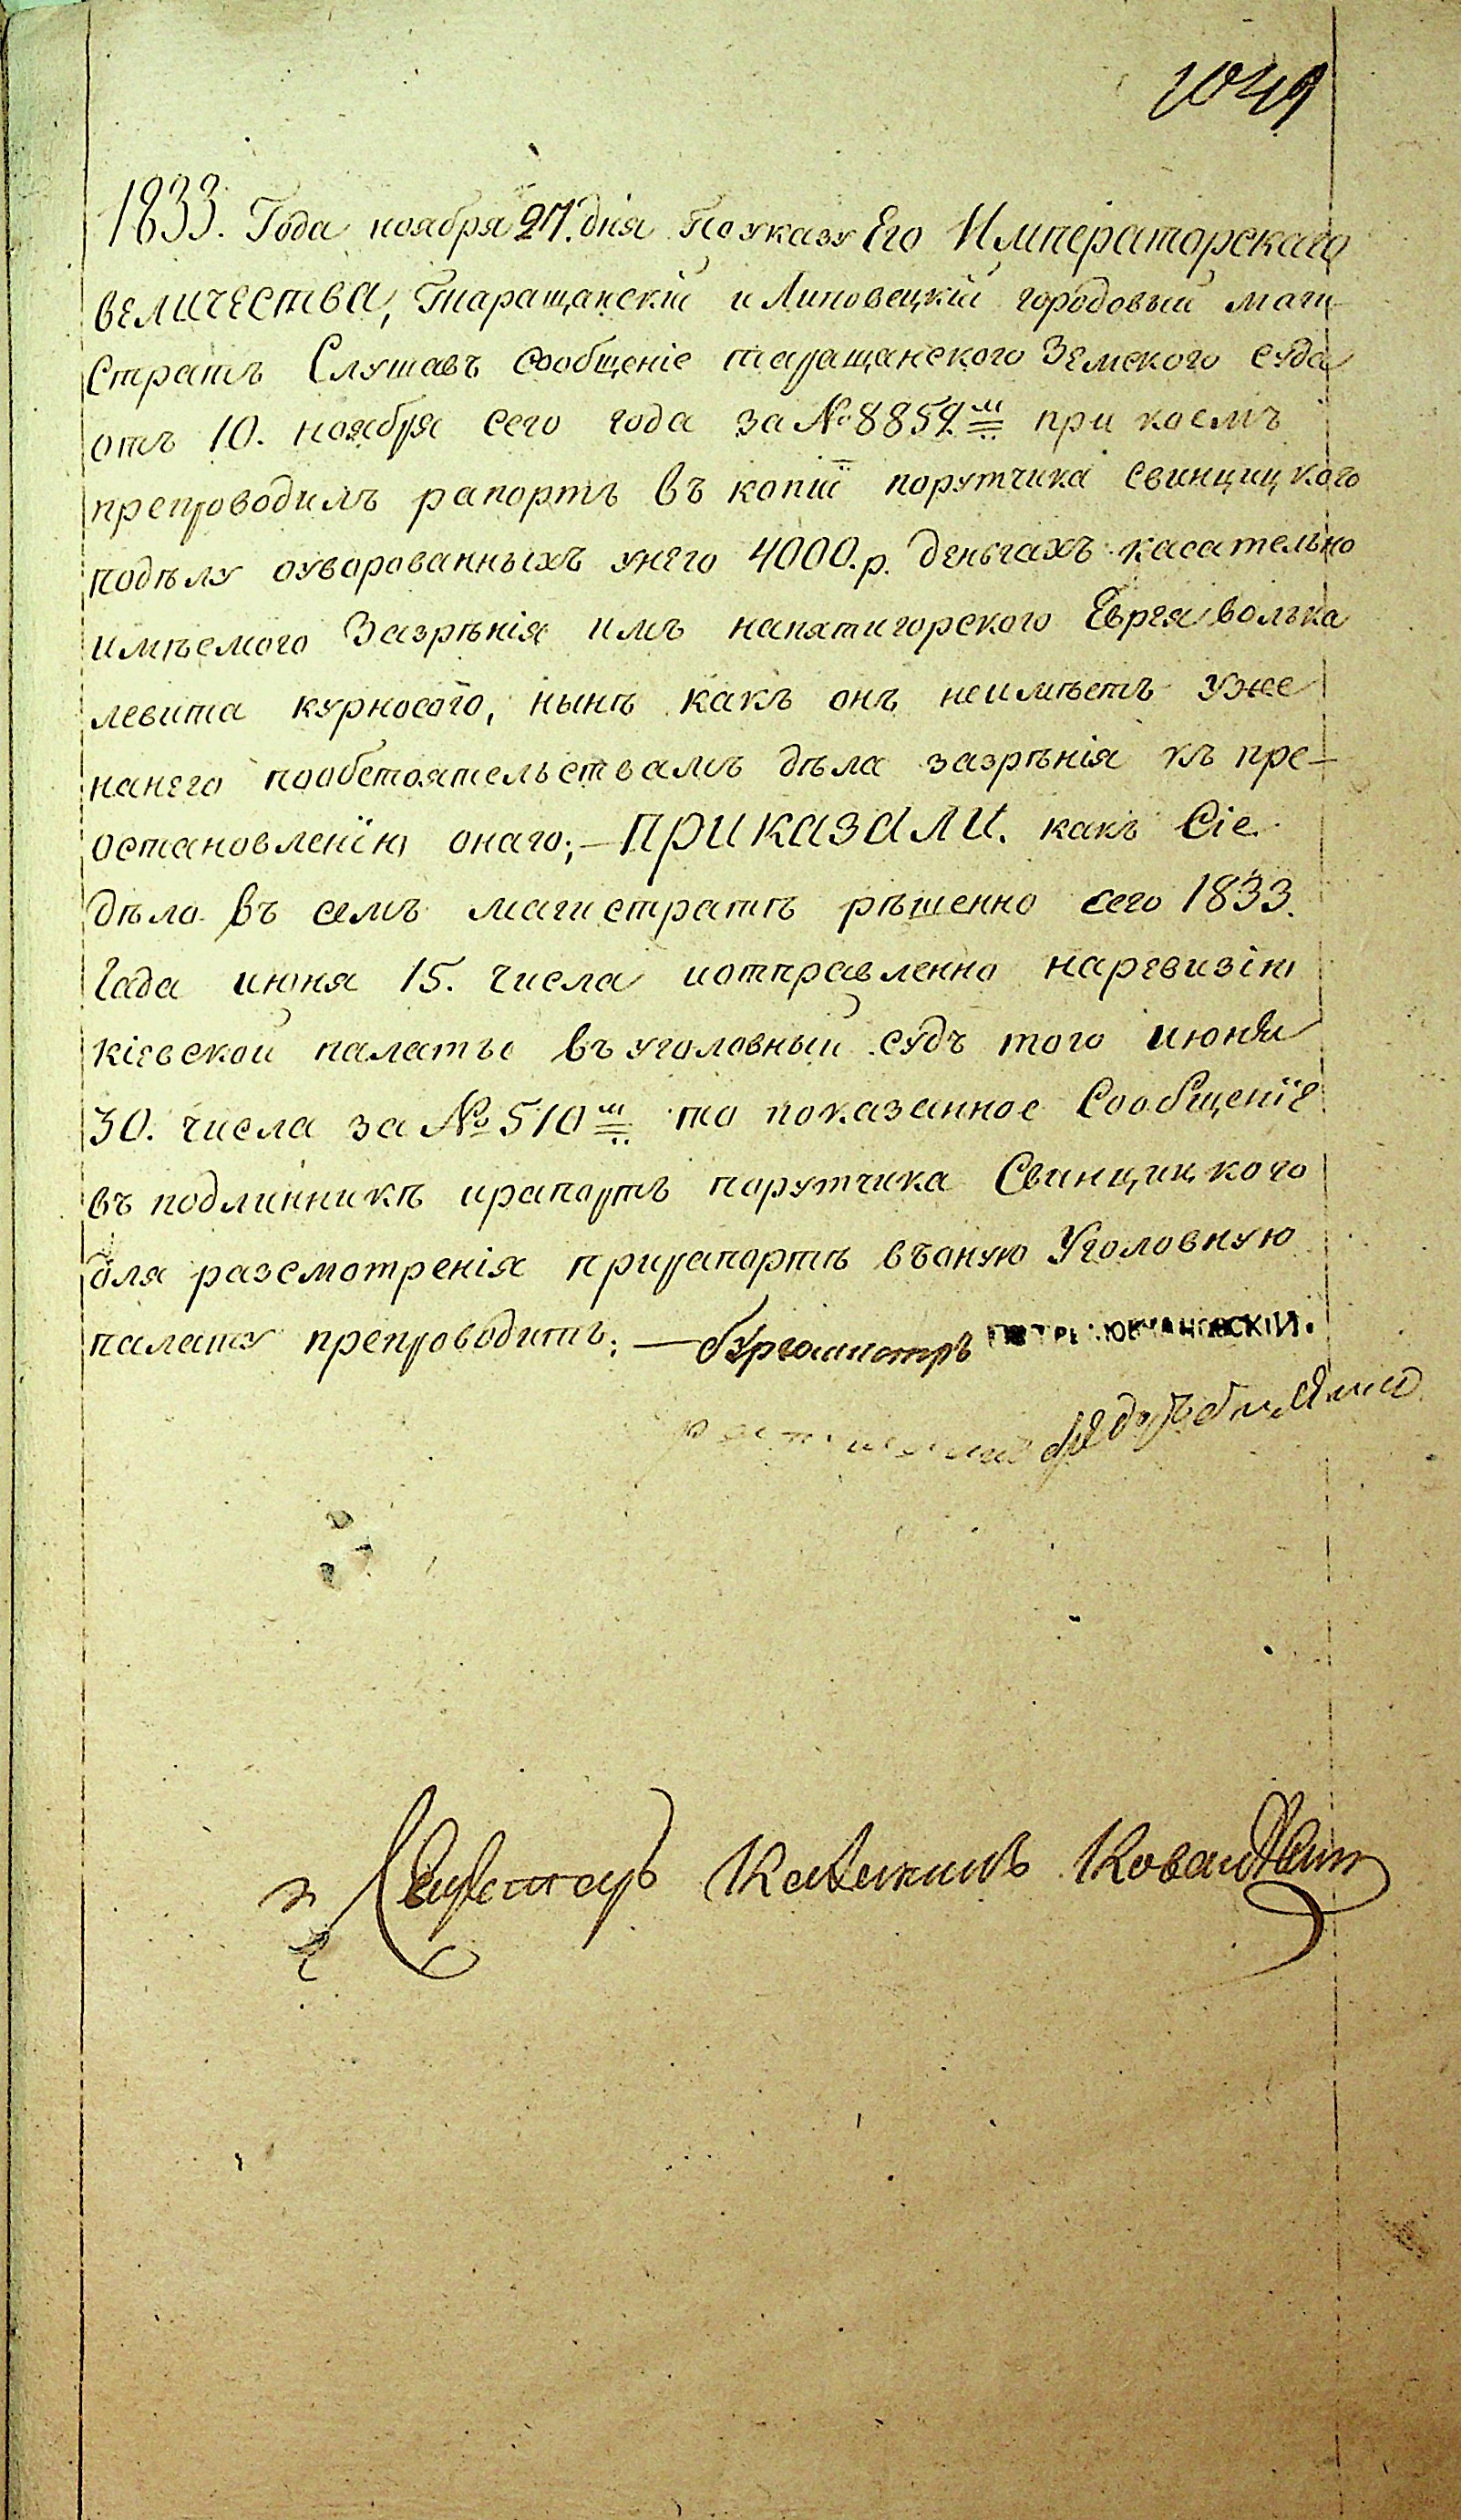 1049
1833. Года ноября 27. дня По указу Его Императорскаго
величества, Таращанскій и Липовецкій городовый маги-
Стратъ Слушавъ сообщеніе таращанского Земского суда
отъ 10. ноября сего года за № 8859.мъ при коемъ
препроводилъ рапортъ въ копіи порутчика свинцицкого
подѣлу оуворованныхъ унего 4000.р. деньгахъ касательно
имѣемого Зазрѣнія имъ напятигорского Еврея волька
левита курносого, нынѣ какъ онъ неимѣетъ уже
нанего пообстоятельствамъ дѣла зазрѣнія къ пре-
остановленїю онаго; — ПРИКАЗАЛИ. какъ Сіе
дѣло въ семъ магистратѣ рѣшенно сего 1833.
Года июня 15. числа иотправленно наревизію
кіевской палаты въ уголовный судъ того июня
30. числа за № 510мъ то показанное Сообщенїе
въ подлинникѣ ирапортъ порутчика Свинцицкого
для разсмотренія прирапортѣ въоную Уголовную
палату препроводить. — бургомистръ
Секретарь Каликстъ